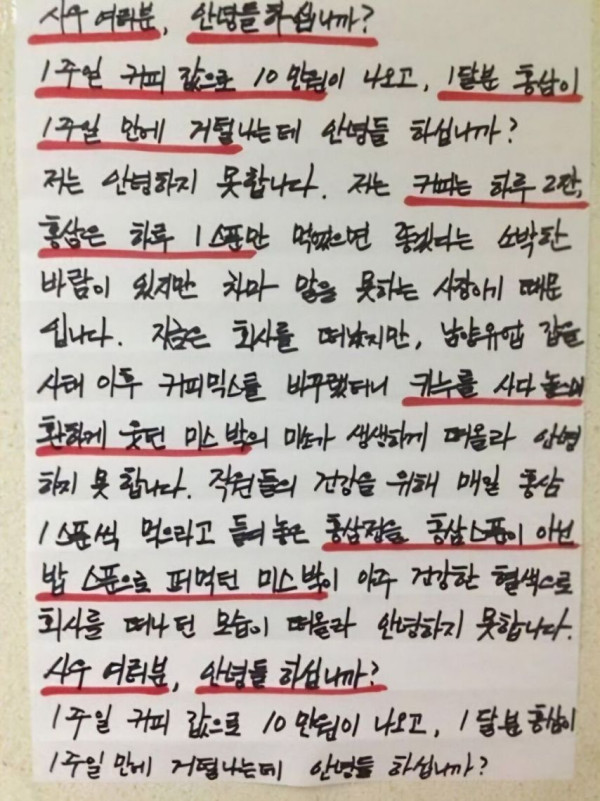 사우 여러분, 안녕들 하십니까?
1주일 커피 값으로 10만원이 나오고, 1달분 홍삼이
1주일 만에 거덜나는데 안녕들 하십니까?
저는 안녕하지 못합니다. 저는 커피는 하루 2잔,
홍삼은 하루 1스푼만 먹었으면 좋겠다는 소박한
바람이 있지만 차마 말을 못하는 사장이기 때문
입니다. 지금은 회사를 떠났지만, 남양유업 갑을
사태 이후 커피믹스를 바꾸랬더니 카누를 사다 놓으며
환하게 웃던 미스 박의 미소가 생생하게 떠올라 안녕
하지 못합니다. 직원들의 건강을 위해 매일 홍삼
1스푼씩 먹으라고 들여 놓은 홍삼정을 홍삼스푼이 아닌
밥 스푼으로 퍼먹던 미스 박이 아주 건강한 혈색으로
회사를 떠나던 모습이 떠올라 안녕하지 못합니다.
사우 여러분, 안녕들 하십니까?
1주일 커피 값으로 10만원이 나오고, 1달분 홍삼이
1주일 만에 거덜나는데 안녕들 하십니까?